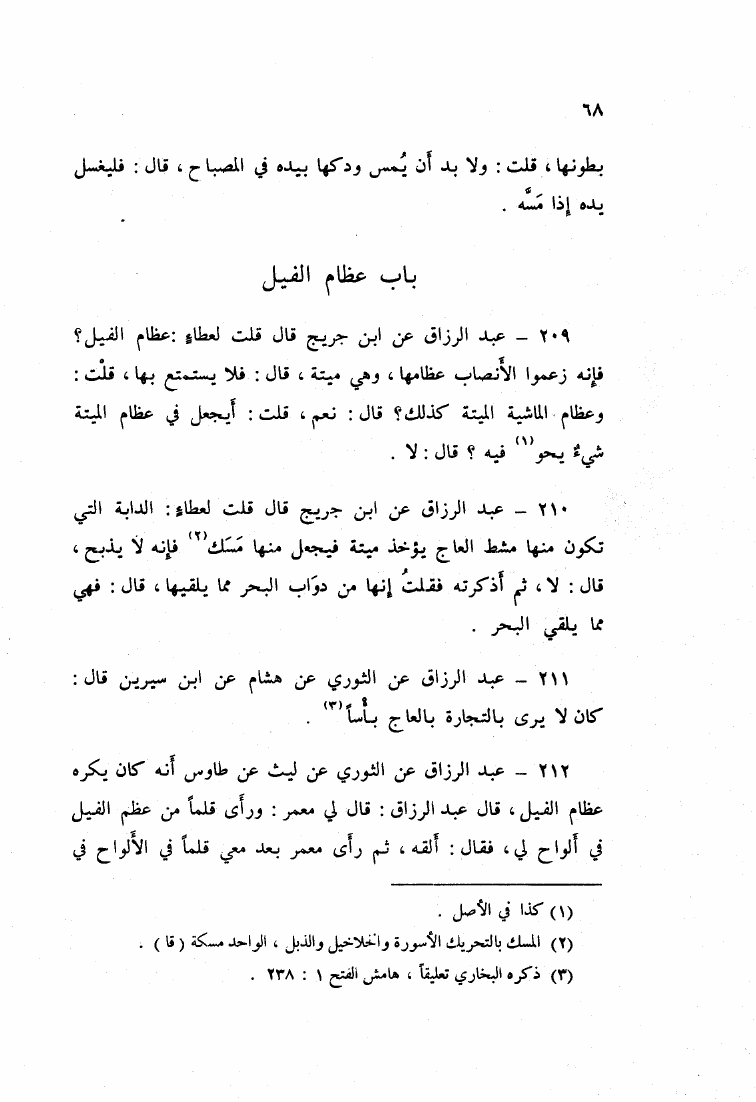 ٦٨
بطونها ، قلت : ولا بد أن يُمس ودكها بيده في المصباح ، قال : فليغسل
يده إذا مَسَّه .
باب عظام الفيل
٢٠٩ – عبد الرزاق عن ابن جريج قال قلت لعطاءٍ :عظام الفيل؟
فإنه زعموا الأَنصاب عظامها ، وهي ميتة ، قال : فلا يستمتع بها ، قلْت :
وعظام الماشية الميتة كذلك؟ قال : نعم ، قلت : أَيجعل في عظام الميتة
شيءٌ يحو(١) فيه ؟ قال : لا .
٢١٠ – عبد الرزاق عن ابن جريج قال قلت لعطاءٍ : الدابة التي
تكون منها مشط العاج يؤخذ ميتة فيجعل منها مَسَك(٢) فإنه لا يذبح ،
قال : لا ، ثم أذكرته فقلتُ إنها من دوَاب البحر مما يلقيها ، قال : فهي
مما يلقي البحر .
٢١١ – عبد الرزاق عن الثوري عن هشام عن ابن سيرين قال :
كان لا يرى بالتجارة بالعاج بأْساً(٣) .
٢١٢ – عبد الرزاق عن الثوري عن ليث عن طاوس أَنه كان يكره
عظام الفيل ، قال عبد الرزاق : قال لي معمر : ورأى قلماً من عظم الفيل
في أَلواح لي ، فقال : أَلقه ، ثم رأى معمر بعد معي قلماً في الأَلواح في
(١) كذا في الأصل .
(٢) المسك بالتحريك الأسورة والخلاخيل والذبل ، الواحد مسكة ( قا ) .
(٣) ذكره البخاري تعليقاً ، هامش الفتح ١ : ٢٣٨ .